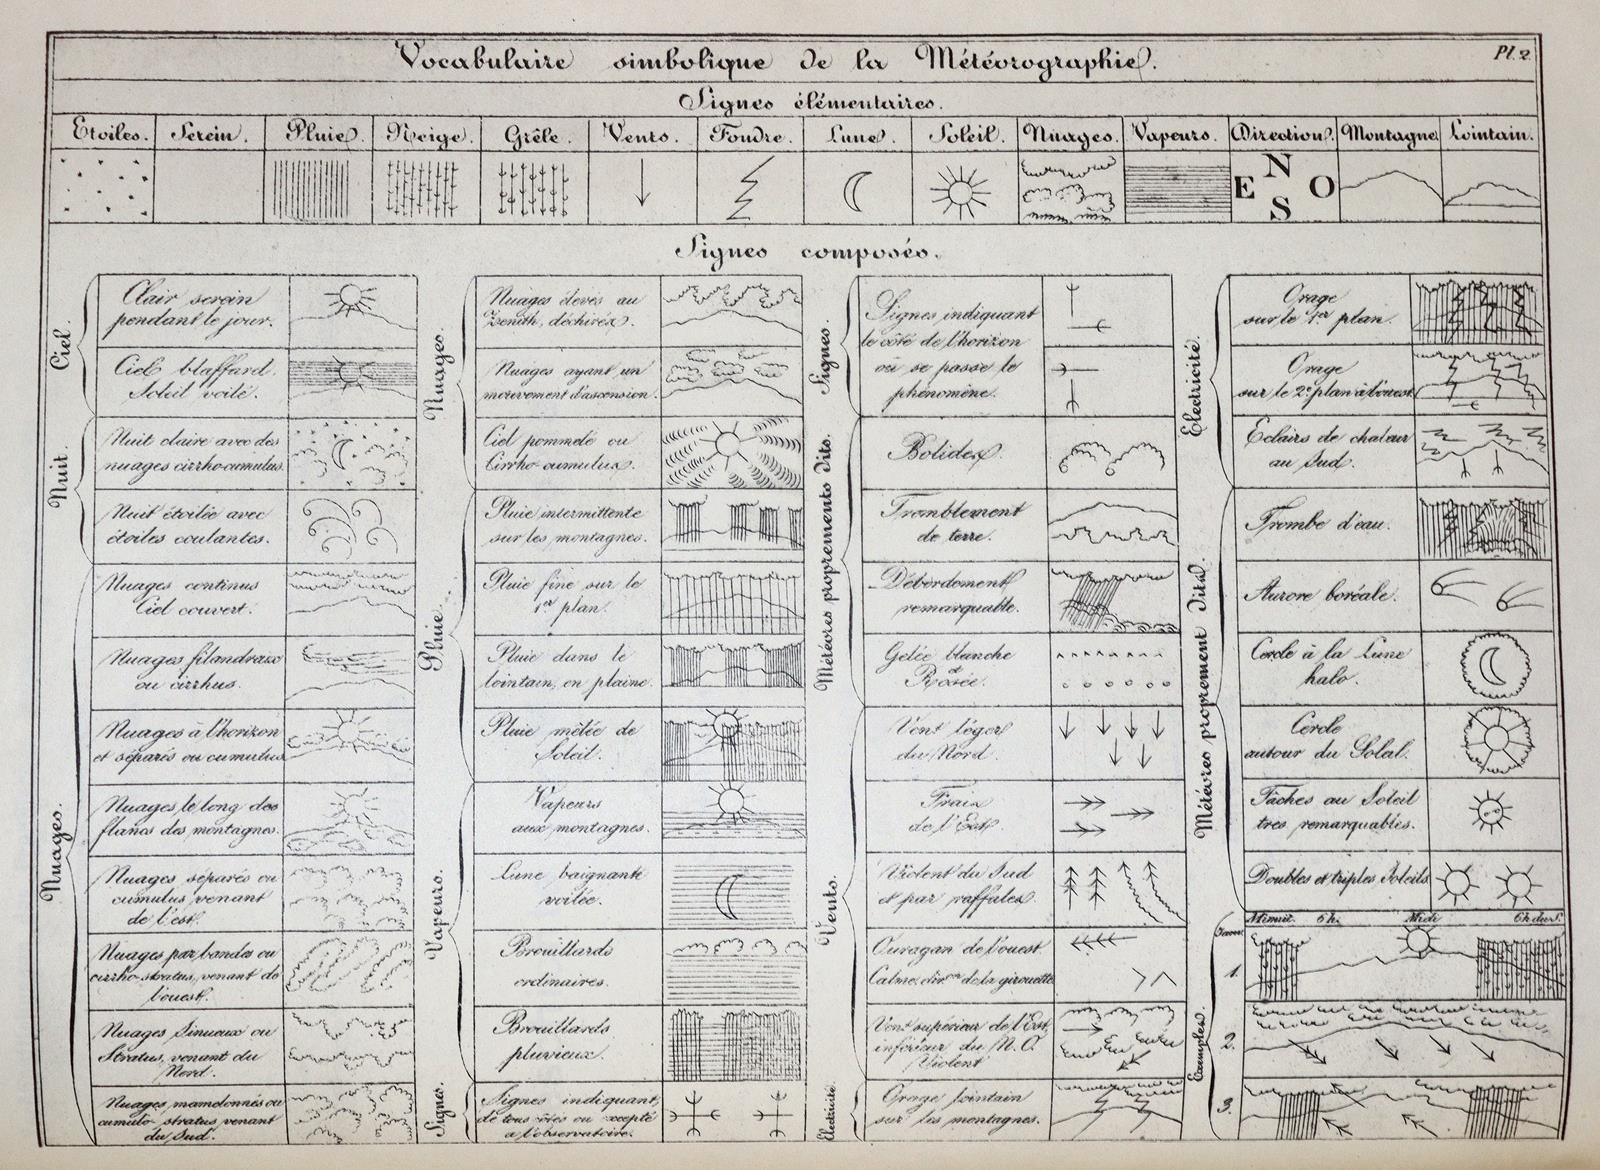 Vocabulaire simbolique de la Météorographie.
Pl. 2
Signes élémentaires.
Etoiles. Serein. Pluie. Neige. Grêle. Vents. Foudre. Lune. Soleil. Nuages. Vapeurs. Direction. Montagne Lointain.
N
E O
S
Signes composés.
Ciel.
Clair serein
pendant le jour.
Ciel blaffard.
Soleil voilé.
Nuit.
Nuit claire avec des
nuages cirrho-cumulus.
Nuit étoilée avec
étoiles coulantes.
Nuages.
Nuages continus
Ciel couvert.
Nuages filandreux
ou cirrhus.
Nuages à l'horizon
et séparés ou cumulus
Nuages le long des
flancs des montagnes.
Nuages séparés ou
cumulus venant
de l'est.
Nuages par bandes ou
cirrho-stratus, venant de
l'ouest.
Nuages Sinueux ou
Stratus, venant du
Nord.
Nuages mamelonnés ou
cumulo-stratus venant
du Sud.
Nuages.
Nuages élevés au
Zenith, déchirés.
Nuages ayant un
mouvement d'ascension.
Ciel pommelé ou
Cirrho-cumulus.
Pluie.
Pluie intermittente
sur les montagnes.
Pluie fine sur le
1er plan.
Pluie dans le
lointain, en plaine.
Pluie mêlée de
Soleil.
Vapeurs.
Vapeurs
aux montagnes.
Lune baignante
voilée.
Brouillards
ordinaires.
Brouillards
pluvieux.
Signes.
Signes indiquant,
de tous côtés ou excepté
à l'observatoire.
Signes.
Signes indiquant
le côté de l'horizon
où se passe le
phénomène.
Météores proprements dits.
Bolides.
Tremblement
de terre.
Débordement
remarquable.
Gelée blanche
et
Rosée.
Vents.
Vent léger
du Nord.
Frais
de l'Est.
Violent du Sud
et par raffales.
Ouragan de l'ouest.
Calme, dir.on de la girouette
Vent supérieur de l'Est,
inférieur du N.O.
Violent
Electricité.
Orage lointain
sur les montagnes.
Electricité.
Orage
sur le 1er plan.
Orage
sur le 2e plan à l'ouest.
Eclairs de chaleur
au Sud.
Météores proprement dits.
Trombe d'eau.
Aurore boréale.
Cercle à la Lune
halo.
Cercle
autour du Soleil.
Tâches au Soleil
tres remarquables.
Doubles et triples Soleils
Exemples.
Minuit. 6 h. Midi 6 h. du S.
1.
2.
3.